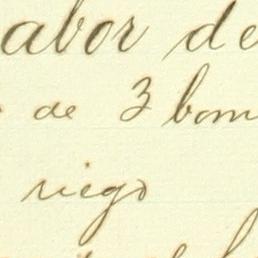 abor de
de 3 bom
riego